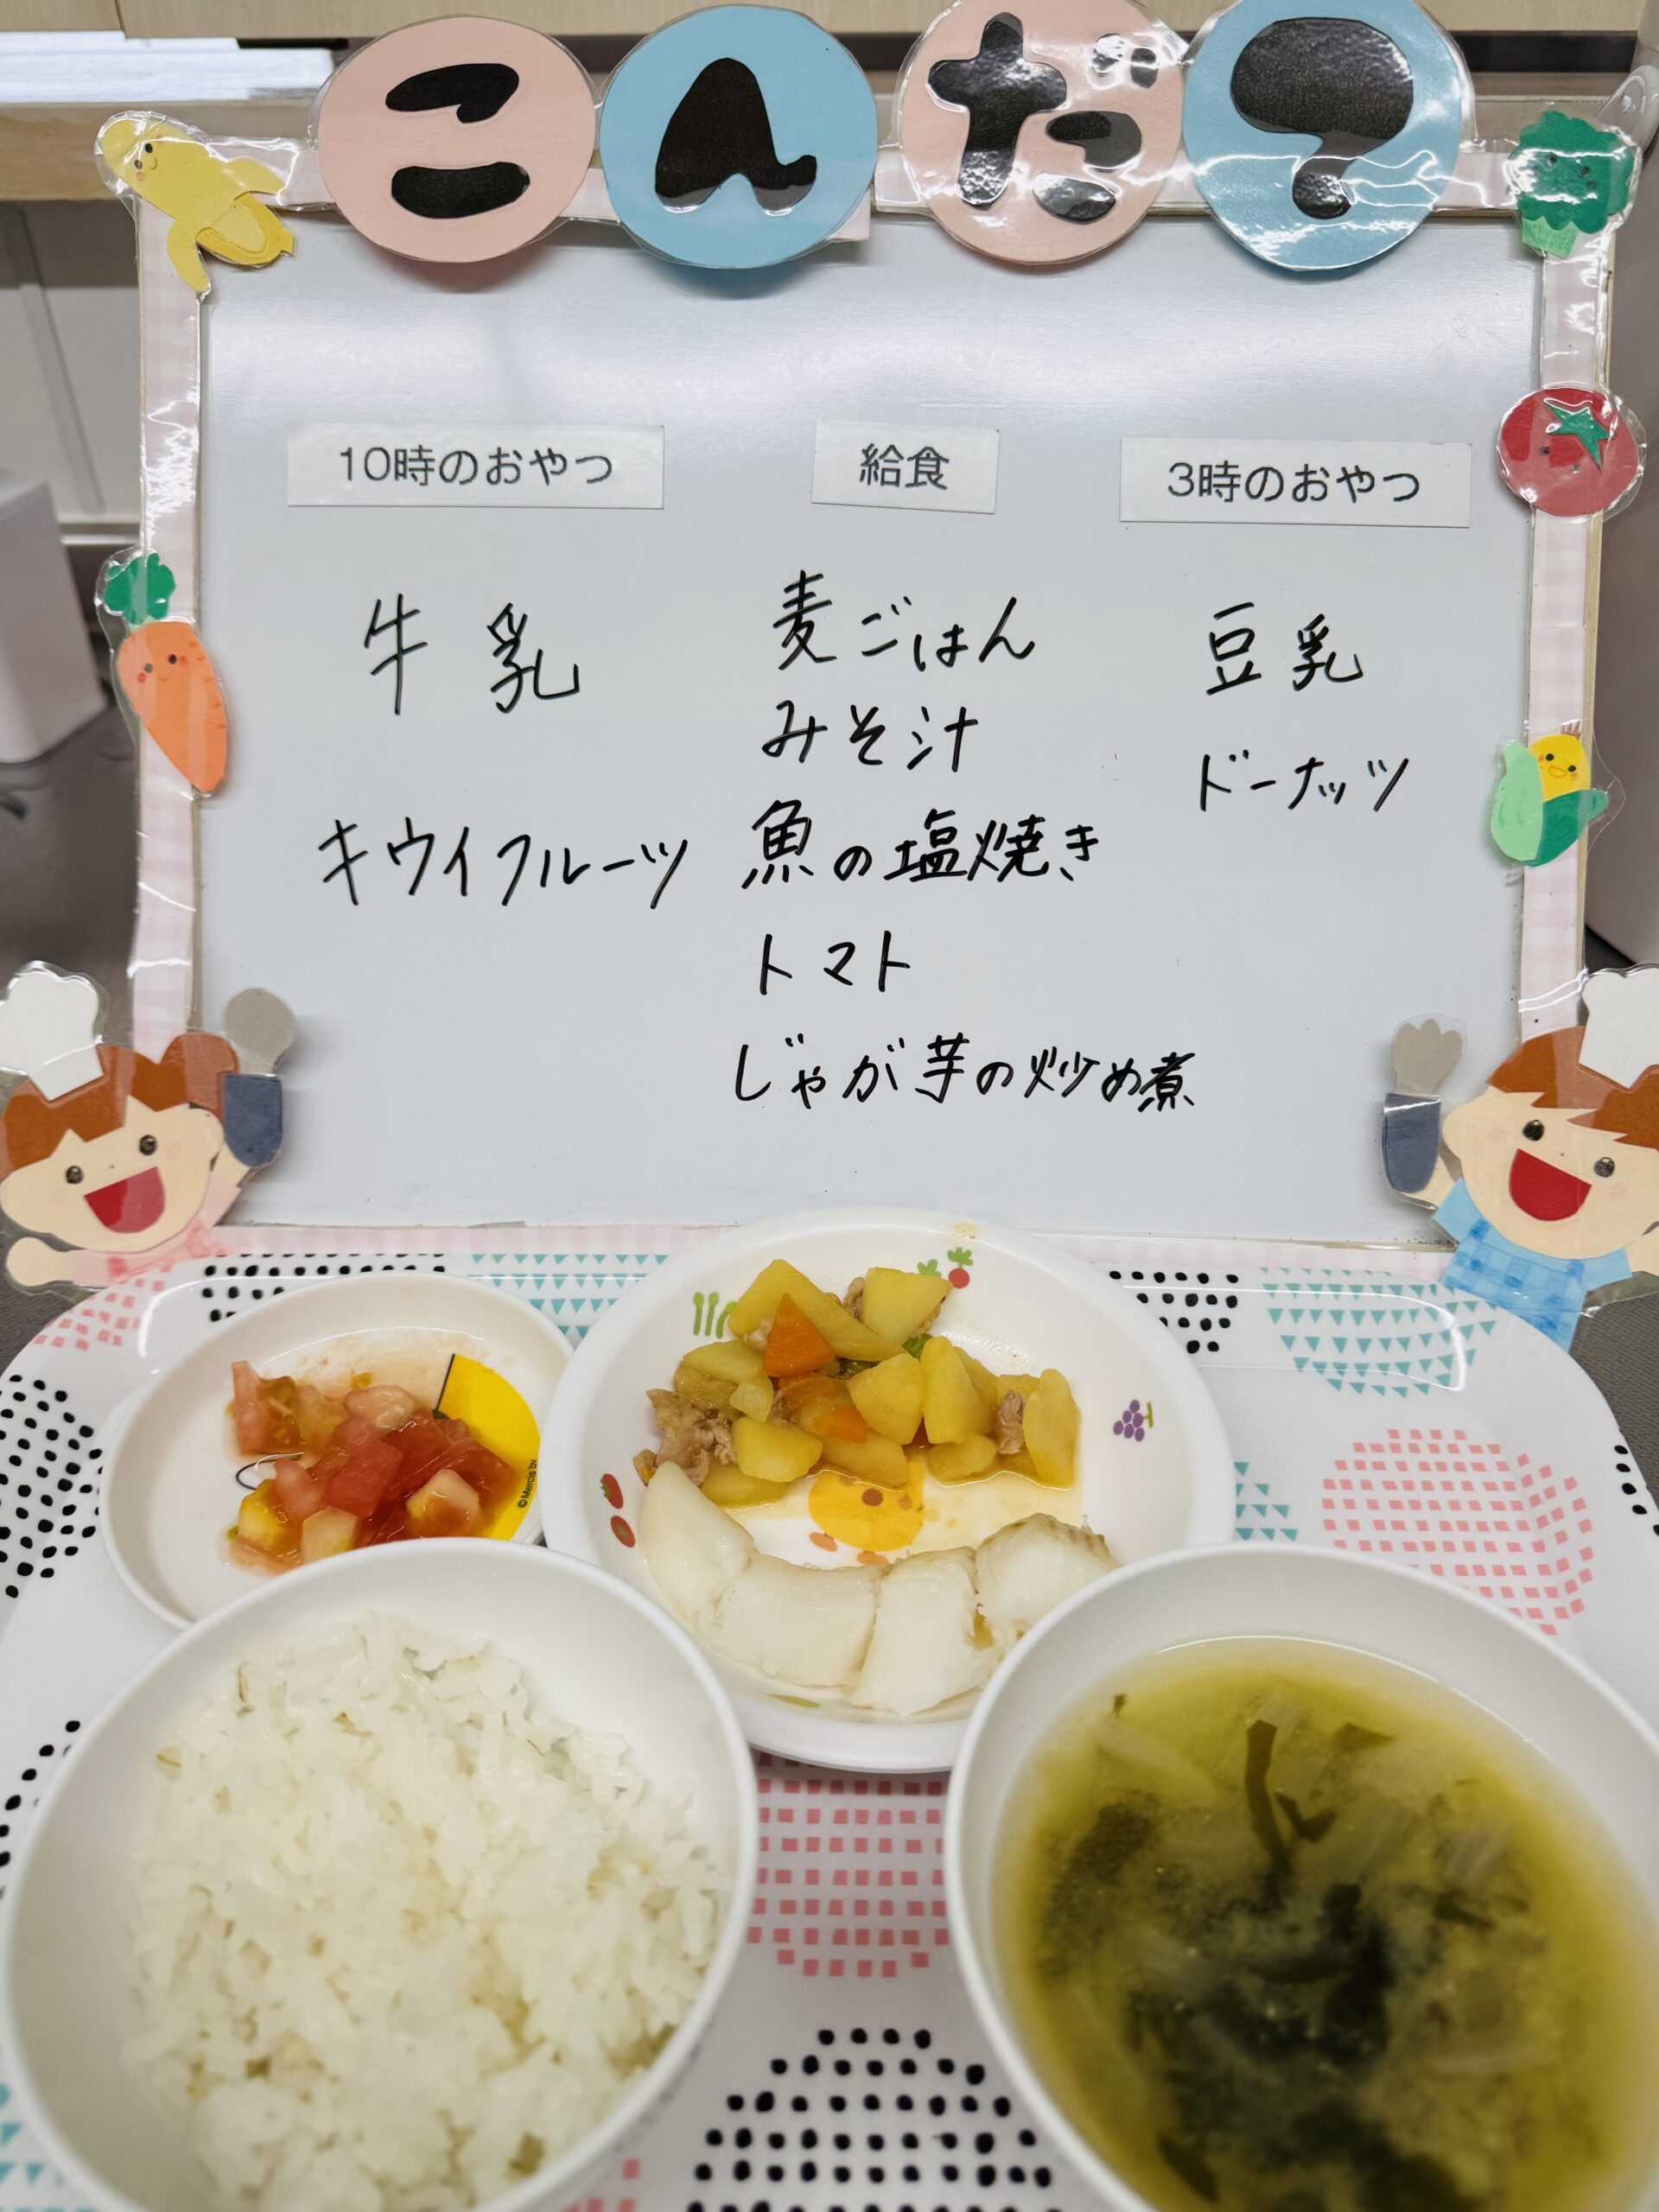 こんだて
10時のおやつ
牛乳
キウイフルーツ
給食
麦ごはん
みそ汁
魚の塩焼き
トマト
じゃが芋の炒め煮
3時のおやつ
豆乳
ドーナッツ
©Mercis bv